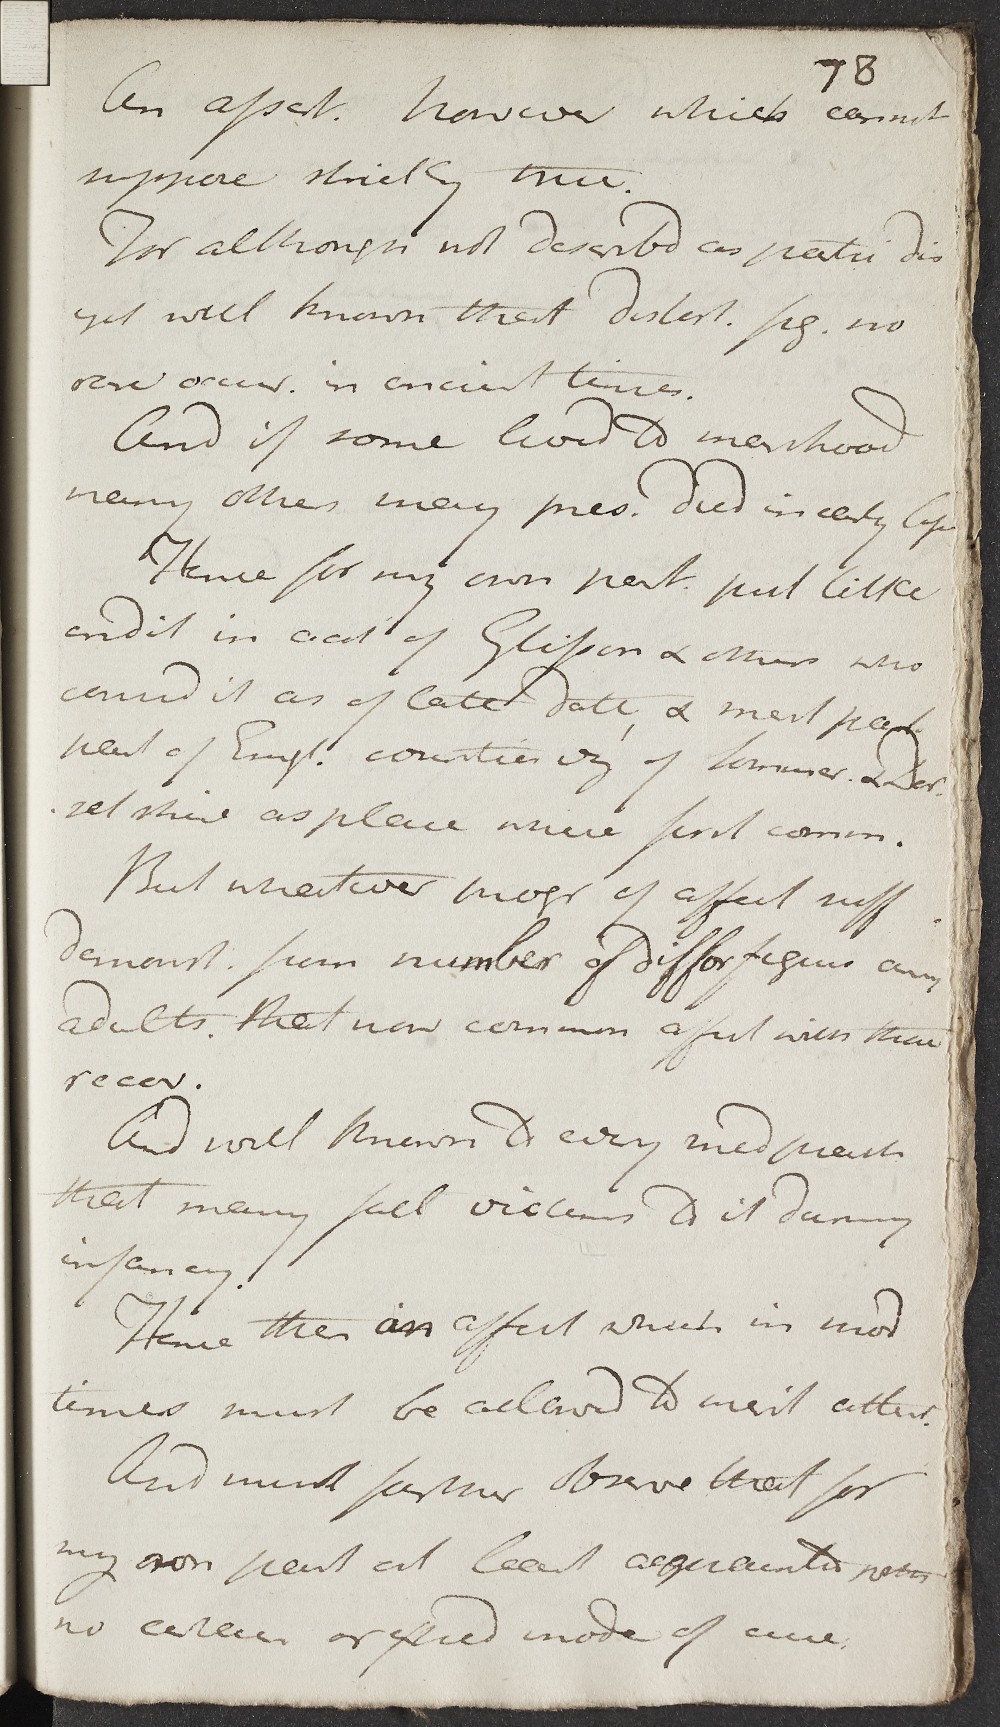 78
An assert. however which cannot
suppose strictly true.
For although not describd as partic dis
yet well known that distort. fig. no
rare occur. in ancient times.
And if some lived to manhood
many others may pres. died in early life
Hence for my own part. put little
credit in acct of Glisson & others who
consid it as of late date, & most part
part of Engl. counties viz of Sommer. & Dor.
set shire as place where first comm.
But whatever progr of affect suff
demonst. from number of diffor figures am
adults. that now common affect with those
recov.
And well known to every med pract
that many fall victims to it during
infancy.
Hence then an affect which in mod
times must be allowed to merit atten.
And must farther observe that for
my own part at least acquainted with
no certain or effied mode of cure.